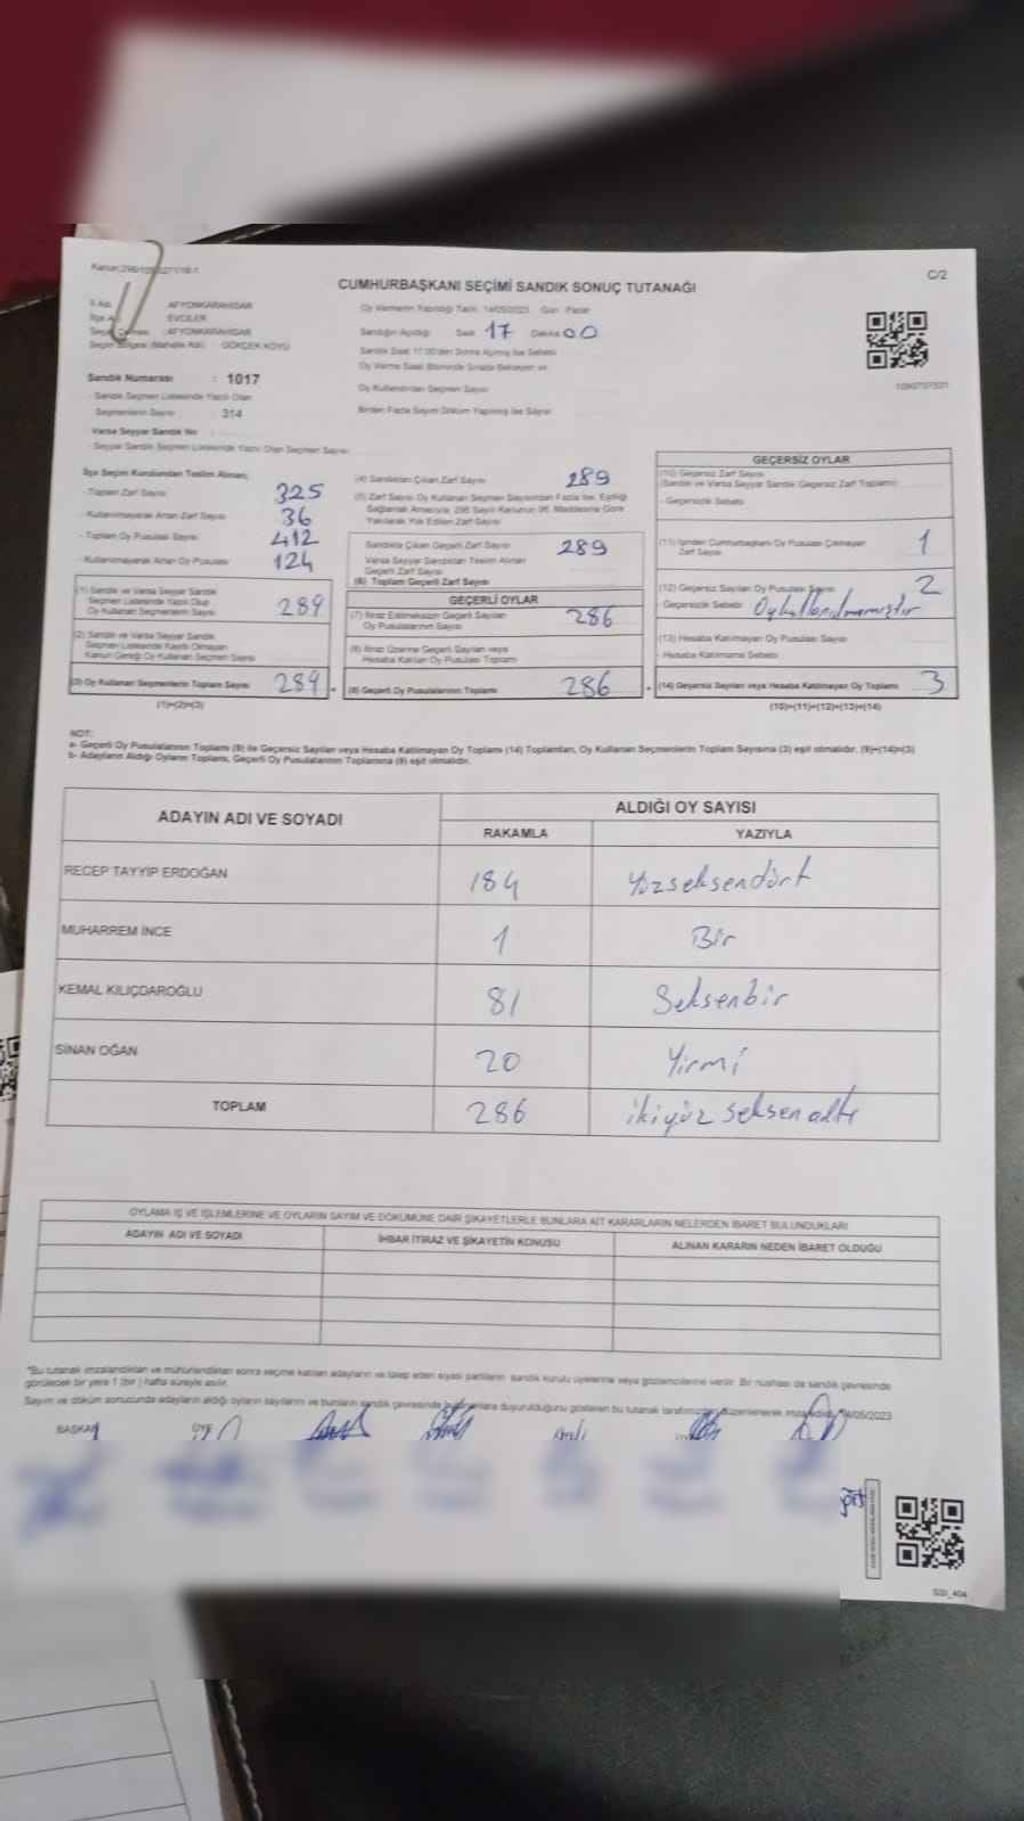 C/2
CUMHURBAŞKANI SEÇİMİ SANDIK SONUÇ TUTANAĞI
AFYONKARAHİSAR
Oy Vermenin Yapıldığı Tarih: 14/05/2023 Gün: Pazar
EVCİLER
AFYONKARAHİSAR
Sandığın Açıldığı Saat 17 Dakika 00
Seçim Bölgesi (Mahalle Adı) : GÖKÇEK KÖYÜ
Sandık Saat 17.00'den Sonra Açılmış İse Sebebi
Sandık Numarası : 1017
Sandık Seçmen Listesinde Yazılı Olan
Oy Kullandırılan Seçmen Sayısı
Seçmenlerin Sayısı : 314
Birden Fazla Sayım Döküm Yapılmış İse Sayısı
Varsa Seyyar Sandık No
- Seyyar Sandık Seçmen Listesinde Yazılı Olan Seçmen Sayısı
İlçe Seçim Kurulundan Teslim Alınan;
- Toplam Zarf Sayısı 325
- Kullanılmayarak Artan Zarf Sayısı 36
- Toplam Oy Pusulası Sayısı 412
- Kullanılmayarak Artan Oy Pusulası 124
(1) Sandık ve Varsa Seyyar Sandık
Seçmen Listesinde Yazılı Olup
Oy Kullanan Seçmenlerin Sayısı 289
(2) Sandık ve Varsa Seyyar Sandık
Seçmen Listesinde Kayıtlı Olmayan
Kanun Gereği Oy Kullanan Seçmen Sayısı
(3) Oy Kullanan Seçmenlerin Toplam Sayısı 289
(1)+(2)=(3)
(4) Sandıktan Çıkan Zarf Sayısı 289
(5) Zarf Sayısı Oy Kullanan Seçmen Sayısından Fazla İse, Eşitliği
Sağlamak Amacıyla, 298 Sayılı Kanunun 98. Maddesine Göre
Yakılarak Yok Edilen Zarf Sayısı
Sandıkta Çıkan Geçerli Zarf Sayısı 289
Varsa Seyyar Sandıktan Teslim Alınan
Geçerli Zarf Sayısı
(6) Toplam Geçerli Zarf Sayısı
GEÇERLİ OYLAR
(7) İtiraz Edilmeksizin Geçerli Sayılan
Oy Pusulalarının Sayısı 286
(8) İtiraz Üzerine Geçerli Sayılan veya
Hesaba Katılan Oy Pusulası Toplamı
(9) Geçerli Oy Pusulalarının Toplamı 286
GEÇERSİZ OYLAR
(10) Geçersiz Zarf Sayısı
(Sandık ve Varsa Seyyar Sandık Geçersiz Zarf Toplamı)
- Geçersizlik Sebebi
(11) İçinden Cumhurbaşkanı Oy Pusulası Çıkmayan
Zarf Sayısı 1
(12) Geçersiz Sayılan Oy Pusulası Sayısı 2
- Geçersizlik Sebebi Oy kullanılmamıştır
(13) Hesaba Katılmayan Oy Pusulası Sayısı
- Hesaba Katılmama Sebebi
(14) Geçersiz Sayılan veya Hesaba Katılmayan Oy Toplamı 3
(10)+(11)+(12)+(13)=(14)
NOT:
a- Geçerli Oy Pusulalarının Toplamı (9) ile Geçersiz Sayılan veya Hesaba Katılmayan Oy Toplamı (14) Toplamları, Oy Kullanan Seçmenlerin Toplam Sayısına (3) eşit olmalıdır. (9)+(14)=(3)
b- Adayların Aldığı Oyların Toplamı, Geçerli Oy Pusulalarının Toplamına (9) eşit olmalıdır.
ADAYIN ADI VE SOYADI
ALDIĞI OY SAYISI
RAKAMLA YAZIYLA
RECEP TAYYİP ERDOĞAN 184 Yüzseksendört
MUHARREM İNCE 1 Bir
KEMAL KILIÇDAROĞLU 81 Seksenbir
SİNAN OĞAN 20 Yirmi
TOPLAM 286 ikiyüz seksen altı
OYLAMA İŞ VE İŞLEMLERİNE VE OYLARIN SAYIM VE DÖKÜMÜNE DAİR ŞİKAYETLERLE BUNLARA AİT KARARLARIN NELERDEN İBARET BULUNDUKLARI
ADAYIN ADI VE SOYADI İHBAR İTİRAZ VE ŞİKAYETİN KONUSU ALINAN KARARIN NEDEN İBARET OLDUĞU
*Bu tutanak imzalandıktan ve mühürlendikten sonra seçime katılan adayların ve talep eden siyasi partilerin sandık kurulu üyelerine veya gözlemcilerine verilir. Bir nüshası da sandık çevresinde
görülecek bir yere 1 (bir) hafta süreyle asılır.
Sayım ve döküm sonucunda adayların aldığı oyların sayılarını ve bunların sandık çevresinde duyurulduğunu gösteren bu tutanak tarafımızdan düzenlenerek 14/05/2023
BAŞKAN ÜYE